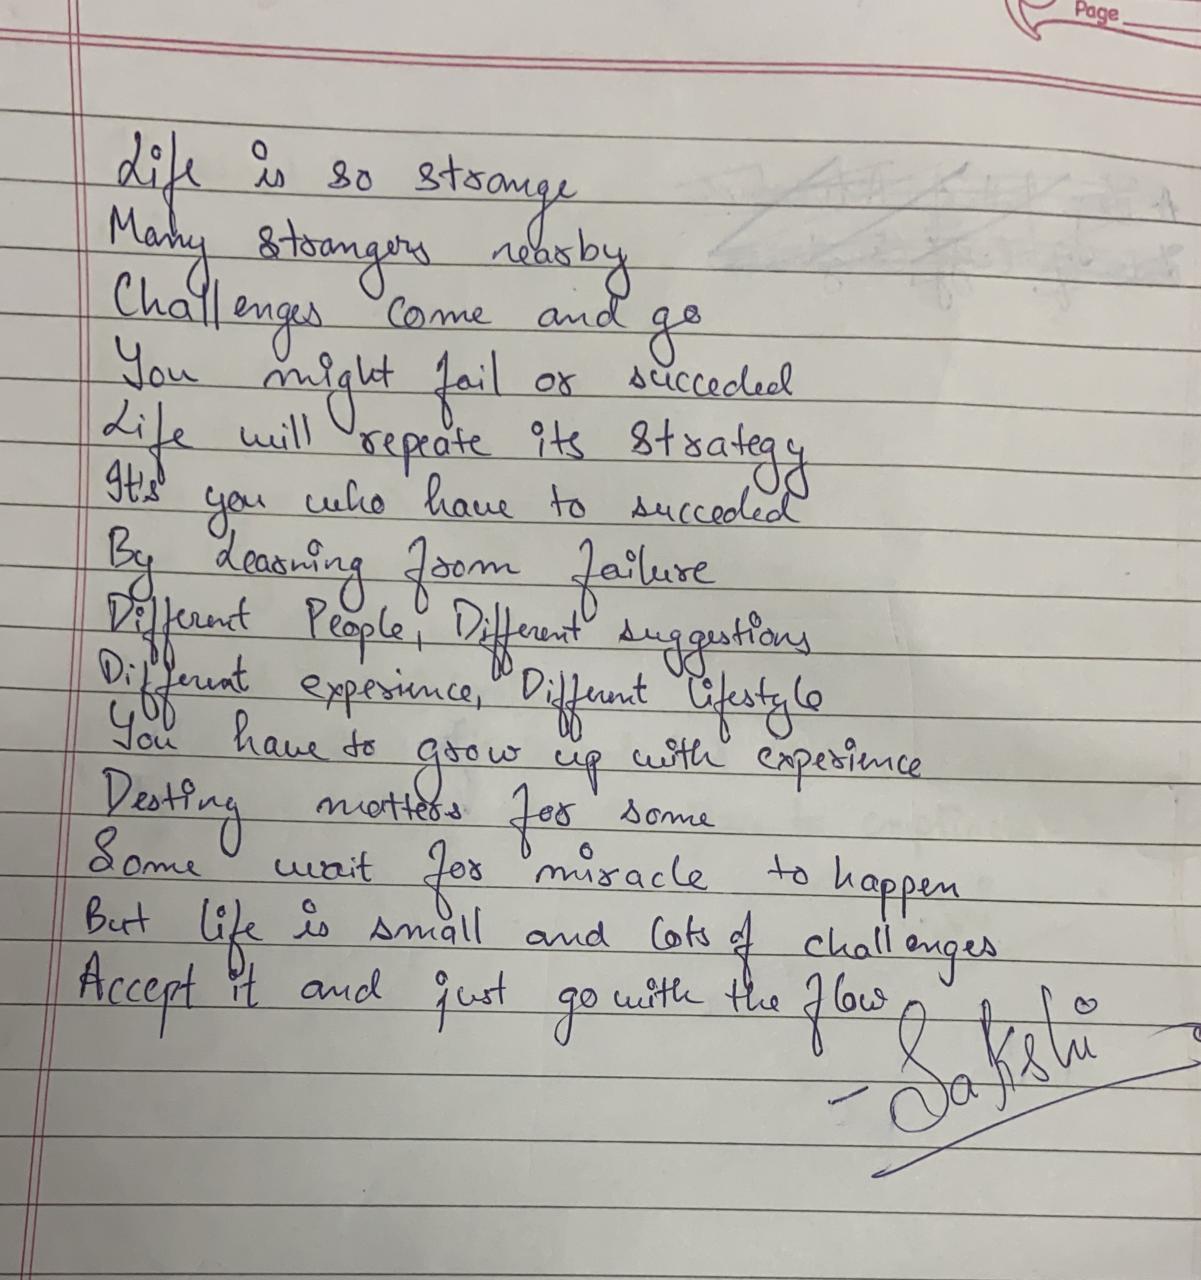 Page
Life is so strange
Many strangers nearby
Challenges come and go
You might fail or succeded
Life will repeate its strategy
It's you who have to succeded
By Learning from failure
Different People, Different suggestions
Different experience, Different lifestyle
You have to grow up with experience
Destiny matters for some
Some wait for miracle to happen
But life is small and lots of challenges
Accept it and just go with the flow
- Sakshi